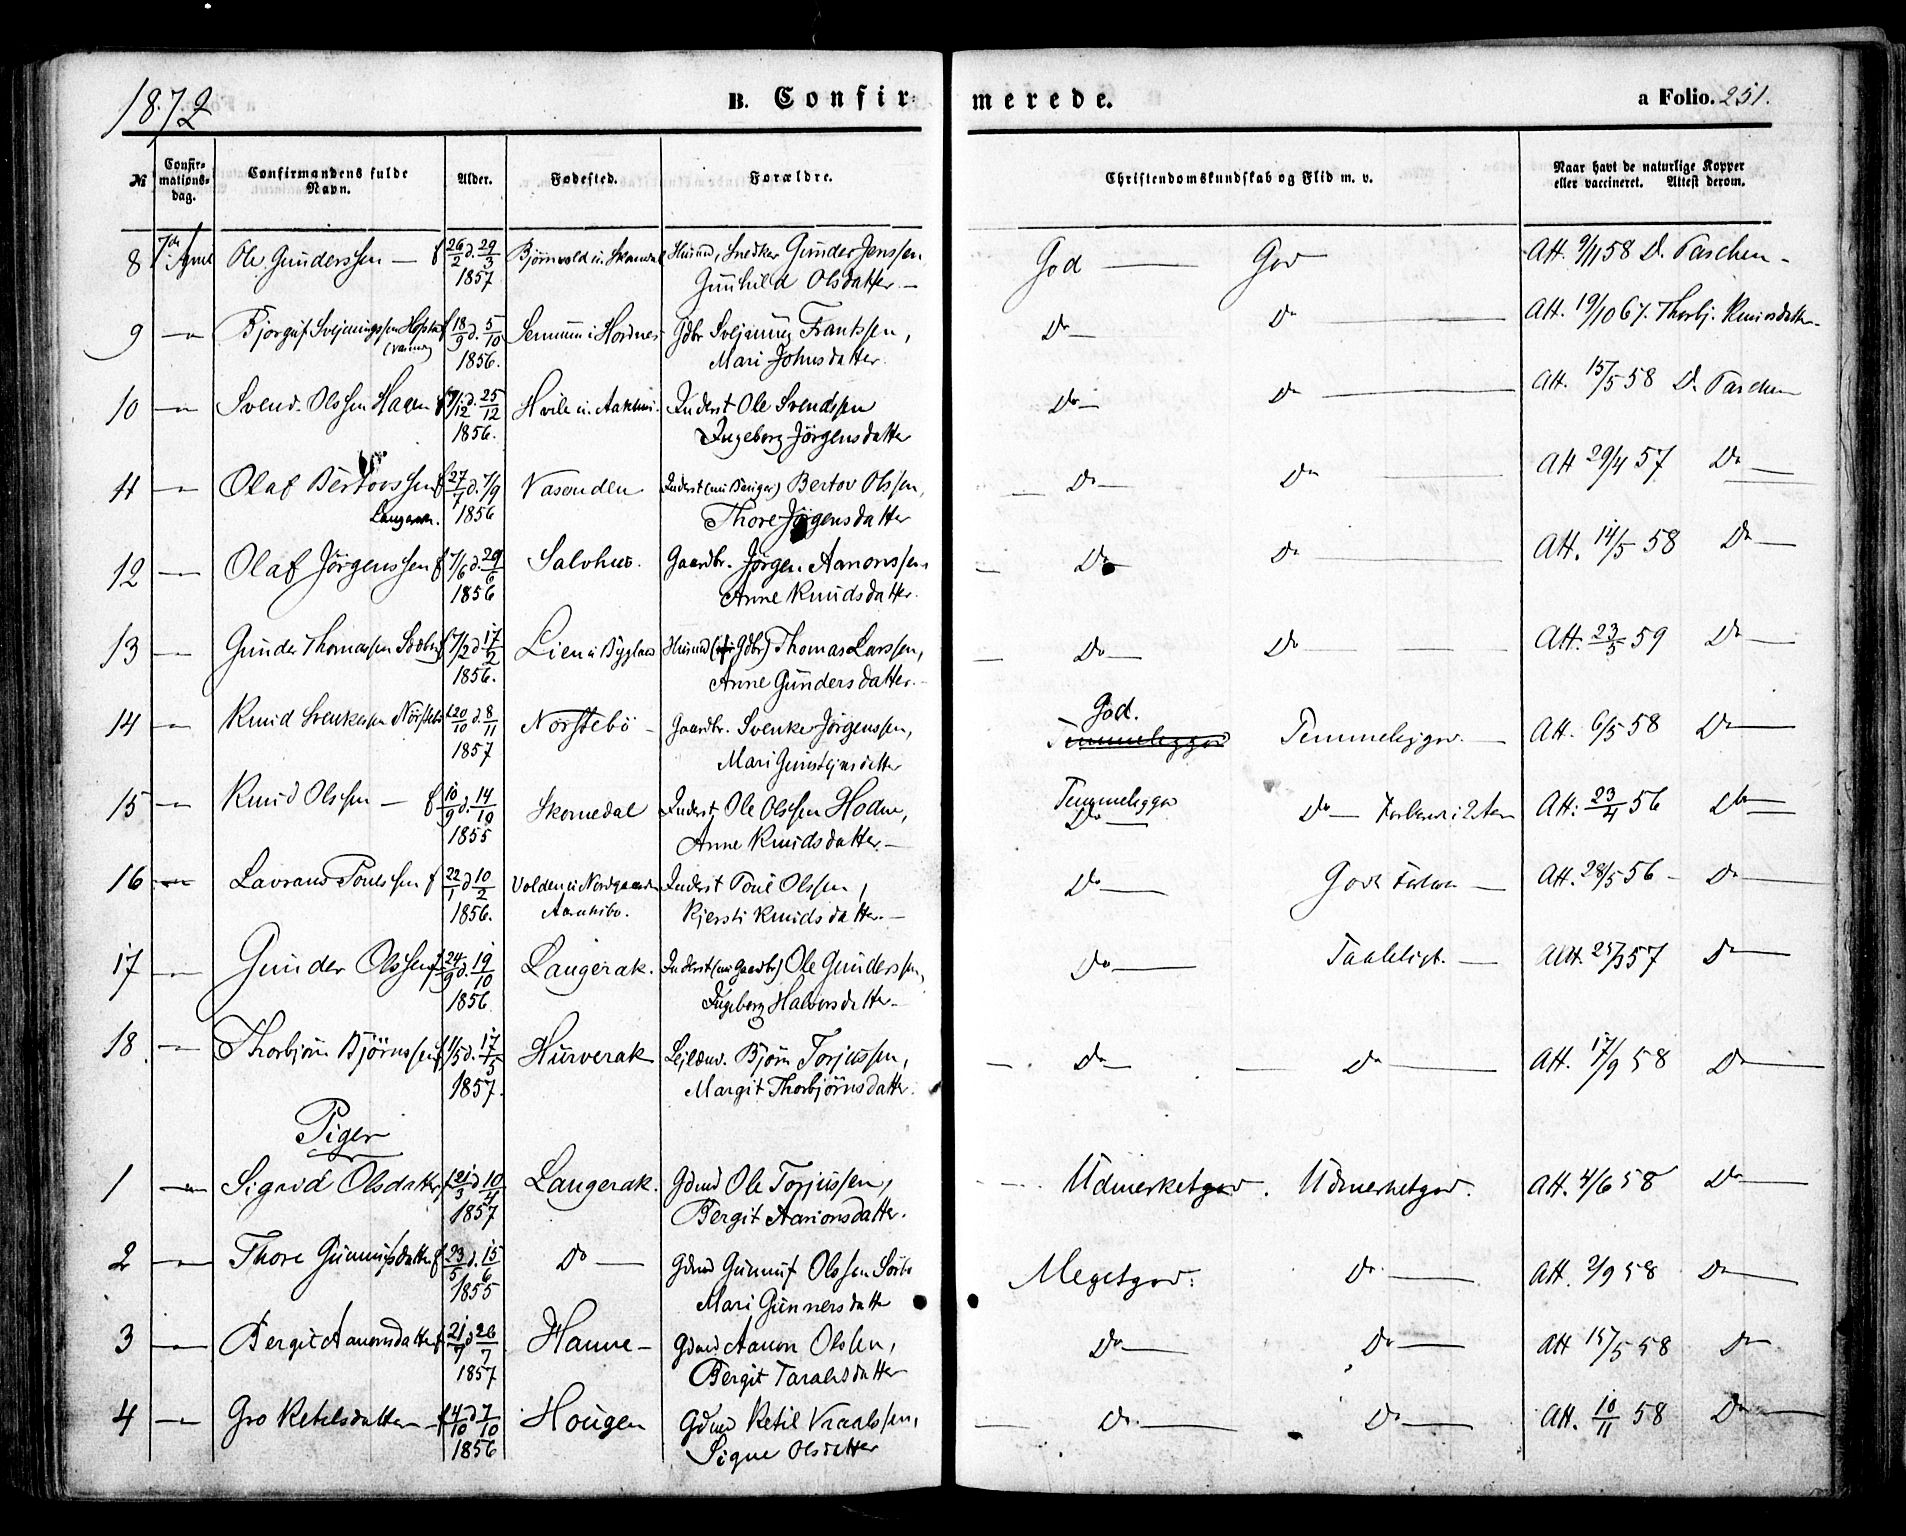 1872
B. Confirmerede.
a Folio. 251.
№
Confirmationsdag.
Confirmandens fulde Navn.
Alder.
Fødested.
Forældre.
Christendomskundskab og Flid m. v.
Naar havt de naturlige Kopper eller vaccineret. Attest derom.
8 7de April Ole Gunderssen — f 26/2 d. 29/3 1857 Husmd, Snedker Gunder Jenssen, Gunhild Olsdatter. — God — God Att. 9/11 58 D. Faschen -
9 — f 18/9 d. 5/10 1856. Gdbr Svejnung Frantssen, Mari Johnsdatter. Do — Do — Att. 19/10 67. Thorbj.
10 — Svend Olssen Hagen d. 25/12 1856. Inderst Ole Svendssen Ingeborg Jörgensdatter Do — Do — Att. 15/5 58 D. Faschen
11 — Olaf Bertovssen Langerak. f 27/7 d. 7/9 1856 Vasenden Inderst Bertov Olssen, Thore Jörgensdatter Do — Do — Att 29/4 57 Do —
12 — Olaf Jörgenssen f 7/6 d. 29/6 1856 Salvhus. Gaardbr. Jörgen Aanonssen, Anne Knudsdatter. Do Do — Att. 14/5 58 Do —
13 — Gunder Thomassen f 7/2 d 17/2 1856. Lien i Byglans Husmd Thomas Larssen, Anne Gundersdatter. — Do — Do — Att. 23/5 59 Do —
14 — Knud Svenkessen Nörstebö f 20/10 d. 8/11 1857 Nörstebö — Gaardbr. Svenke Jörgenssen, Mari Gunsteinsdatter God. Temmeliggod Temmeliggod. — Att. 6/5 58 Do —
15 — Knud Olssen — f 10/9 d. 14/10 1855 Skomedal Inderst Ole Olssen Hodne, Anne Knudsdatter. — Temmeliggod Do — Do — Att: 23/4 56 Do —
16 — Lavrans Poulssen f 22/1 d 10/2 1856. Inderst Poul Olssen, Kjersti Knudsdatter. — Do — Att. 28/5 56 - Do —
17 — Gunder Olssen f 24/9 d. 19/10 1856 Langerak. Inderst Ole Gunderssen, Ingeborg Halvorsdatter — Do — Taaleligt. — Att. 57 Do —
18 — Thorbjörn Björnssen f 1/5 d. 17/5 1857. Hurverak Lejlænd. Björn Torjussen, Margit Thorbjörnsdatter. Do — Do — Att. 17/9 58 Do —
Piger
1 — Sigrid Olsdatter f 21/3 d 10/4 1857 Langerak. Gdmd Ole Torjussen, Bergit Aanonsdatter. Udmerketgod. Udmerketgod. Att. 4/6 58 Do —
2 — Thore Gunnufsdatter f 23/5 d. 15/6 1855 Do — Gdmd Gunnuf Olssen Mari Gunnersdatter Megetgod. Do. — Att. 2/9 58 Do —
3 — Bergit Aanonsdatter f 21/7 d 26/7 1857 Hanne — Gdmd Aanon Olssen, Bergit Taralsdatter Do — Do — Att 15/5 58 Do
4 — Gro Ketelsdatter — f 4/10 d 7/10 1856 Hougen Gdmd Ketil Vraalssen, Signe Olsdatter Do. — Do — Att. 10/11 58 Do —